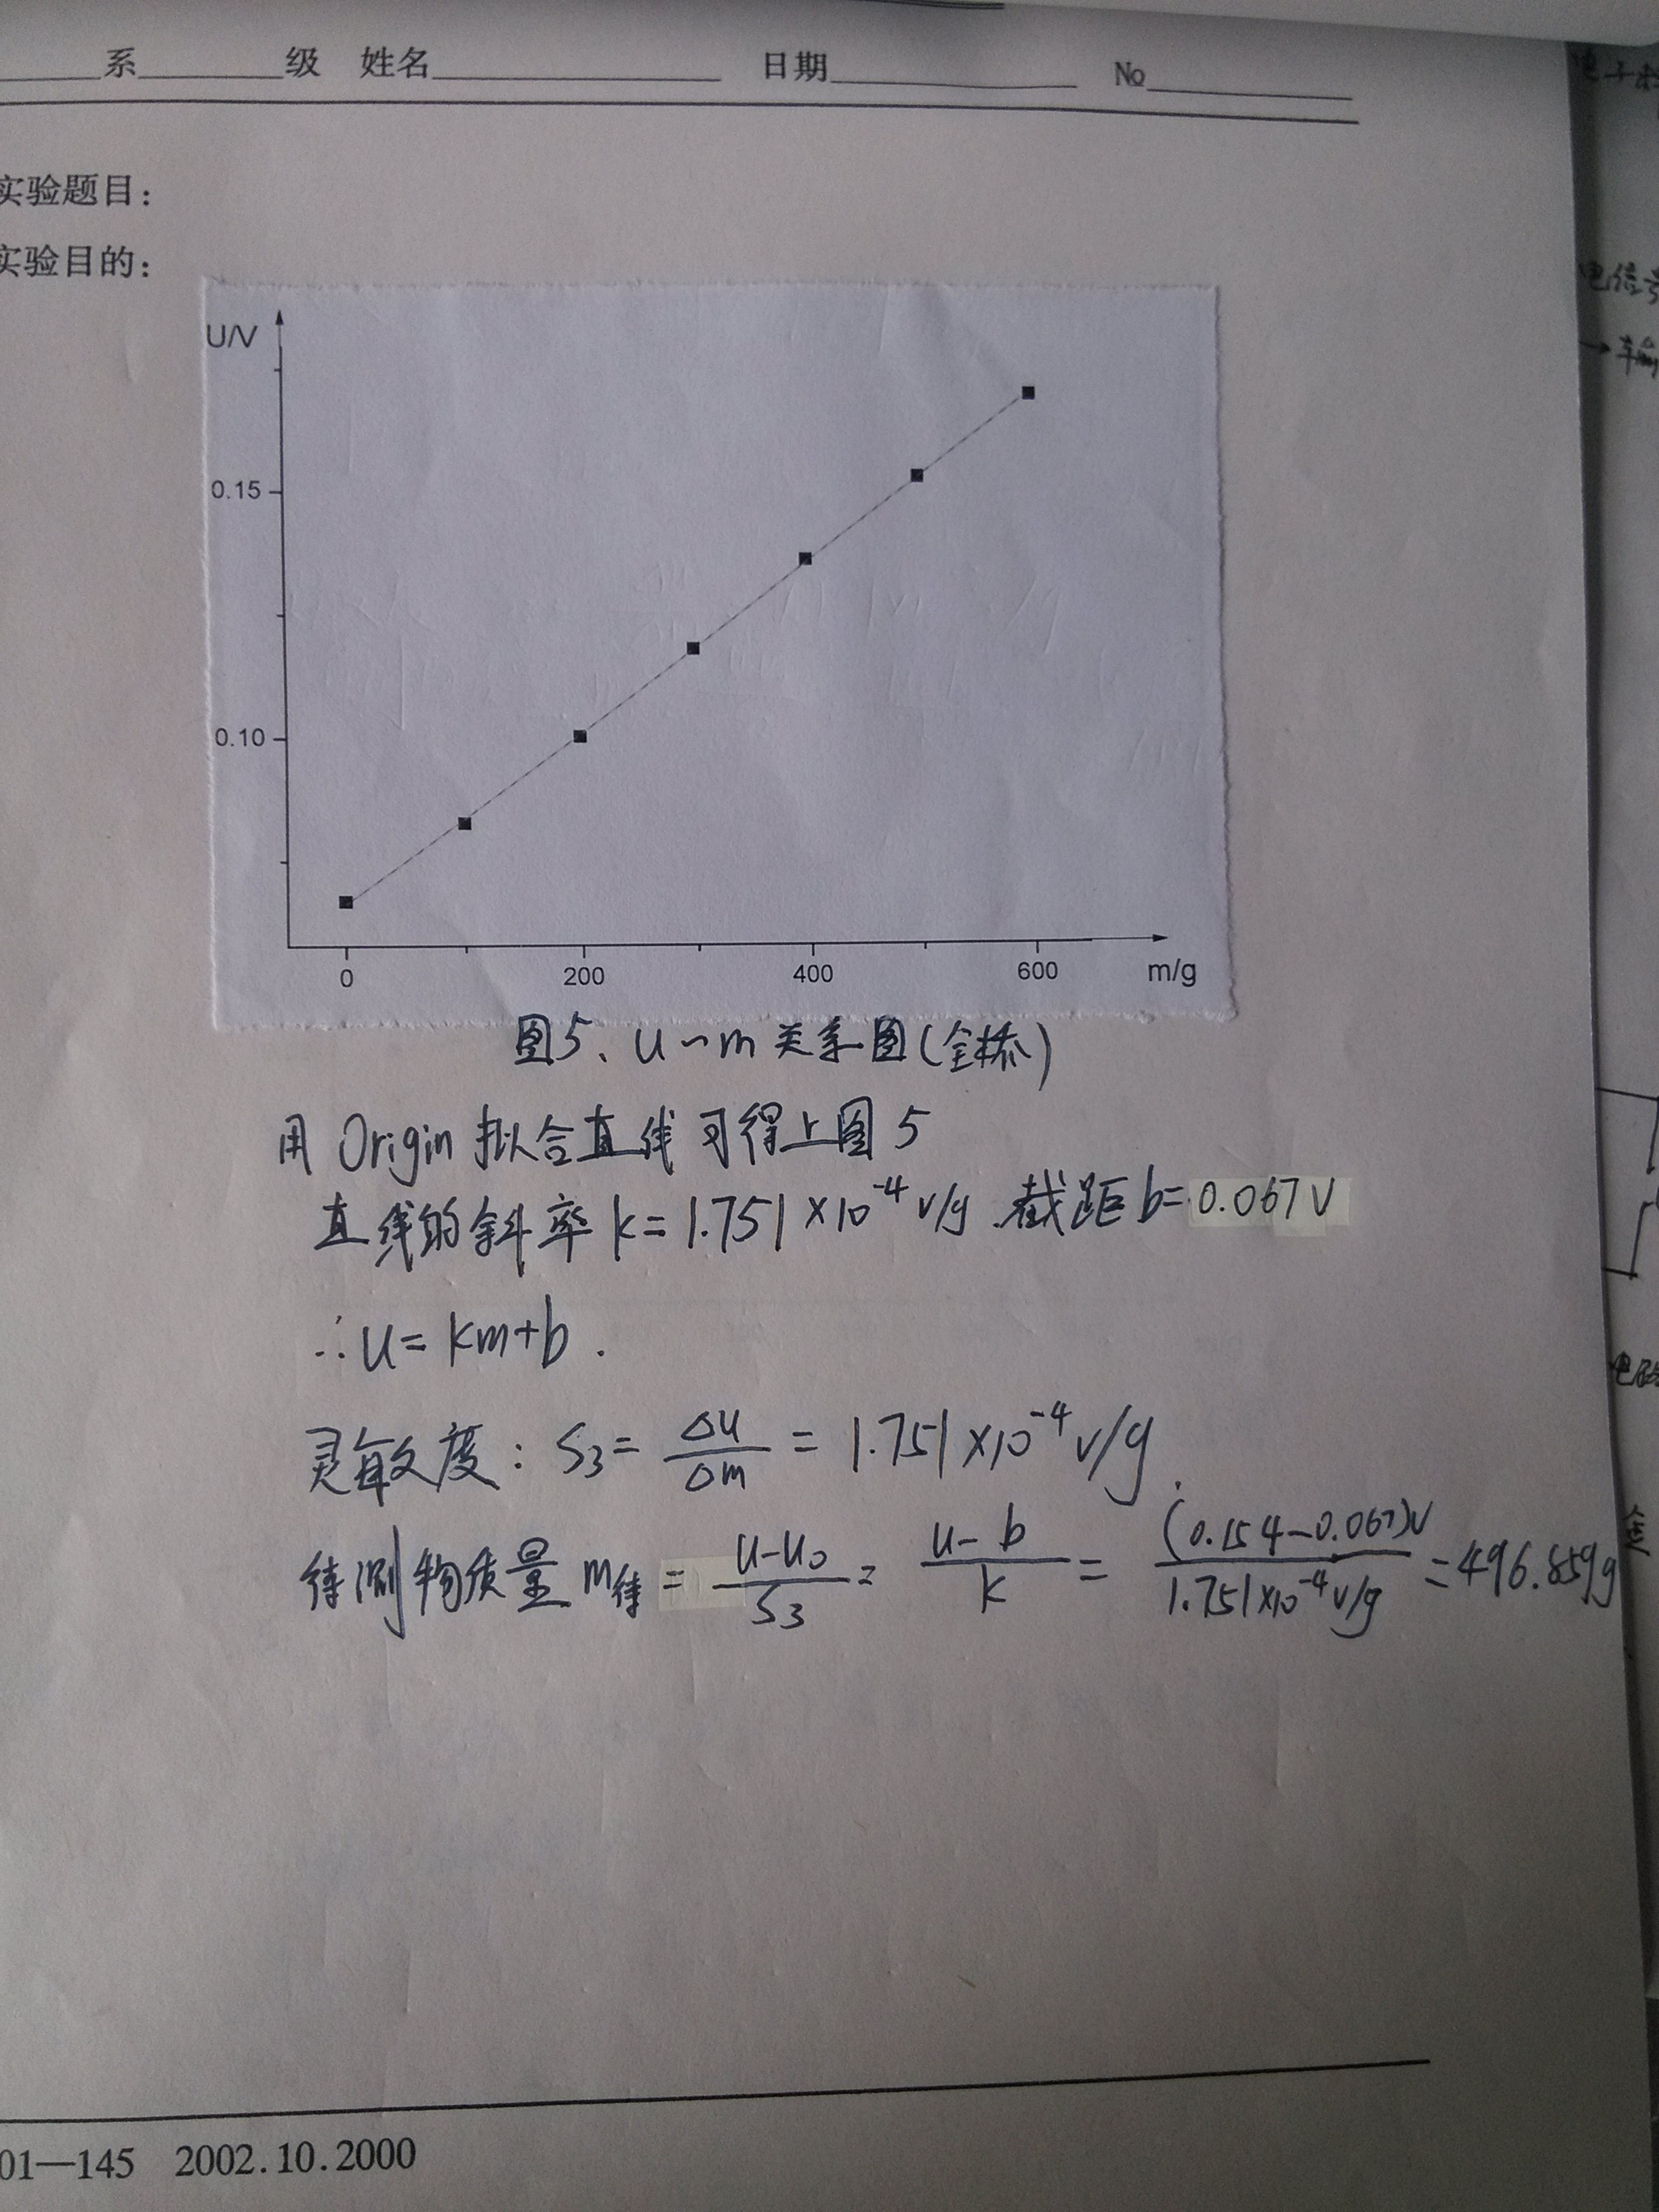 系 级 姓名 日期 No
实验题目:
实验目的:
U/V
0.15
0.10
0 200 400 600 m/g
图5、U~m关系图(全桥)
用Origin拟合直线可得上图5
直线的斜率k=1.751×10⁻⁴v/g.截距b=0.067V
∴U=km+b.
灵敏度:S₃=ΔU/Δm=1.751×10⁻⁴v/g.
待测物质量m待=(U-U₀)/S₃=(U-b)/k=(0.154-0.067)V/1.751×10⁻⁴v/g=496.859g
01—145 2002.10.2000
电信号